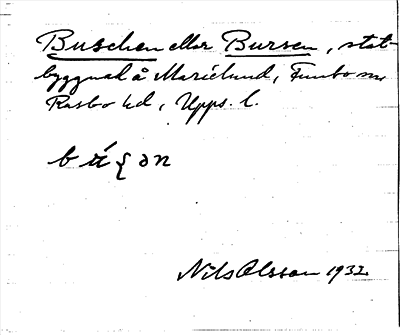 Buschen eller Bursen, stat-
byggnad å Marielund, Funbo sn
Rasbo hd, Upps. l.
Nils Olsson 1932